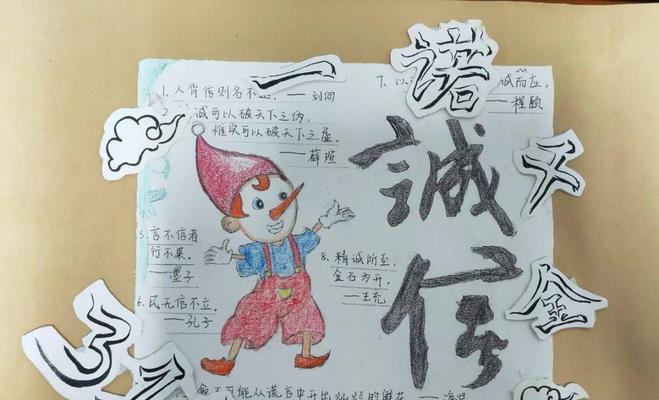 一诺千金
1、人背信则名不
——刘向
7、以
诚而应。
——程颐
诚可以破天下之伪,
惟实可以破天下之虚。
——薛瑄
誠信
5、言不信者
行不果。
——墨子
8、精诚所至,
金石为开。
——王充
6、民无信不立。
——孔子
可能从谎言中开出灿烂的鲜花